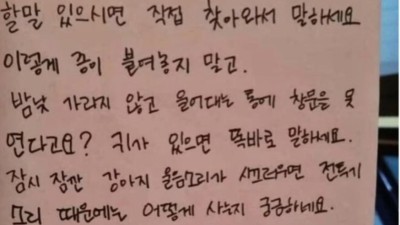 할말 있으시면 직접 찾아와서 말하세요
이렇게 종이 붙여놓지 말고.
밤낮 가리지 않고 울어대는 통에 창문을 못
연다고요? 귀가 있으면 똑바로 말하세요.
잠시 잠깐 강아지 울음소리가 시끄러우면 전투기
소리 때문에는 어떻게 사는지 궁금하네요.